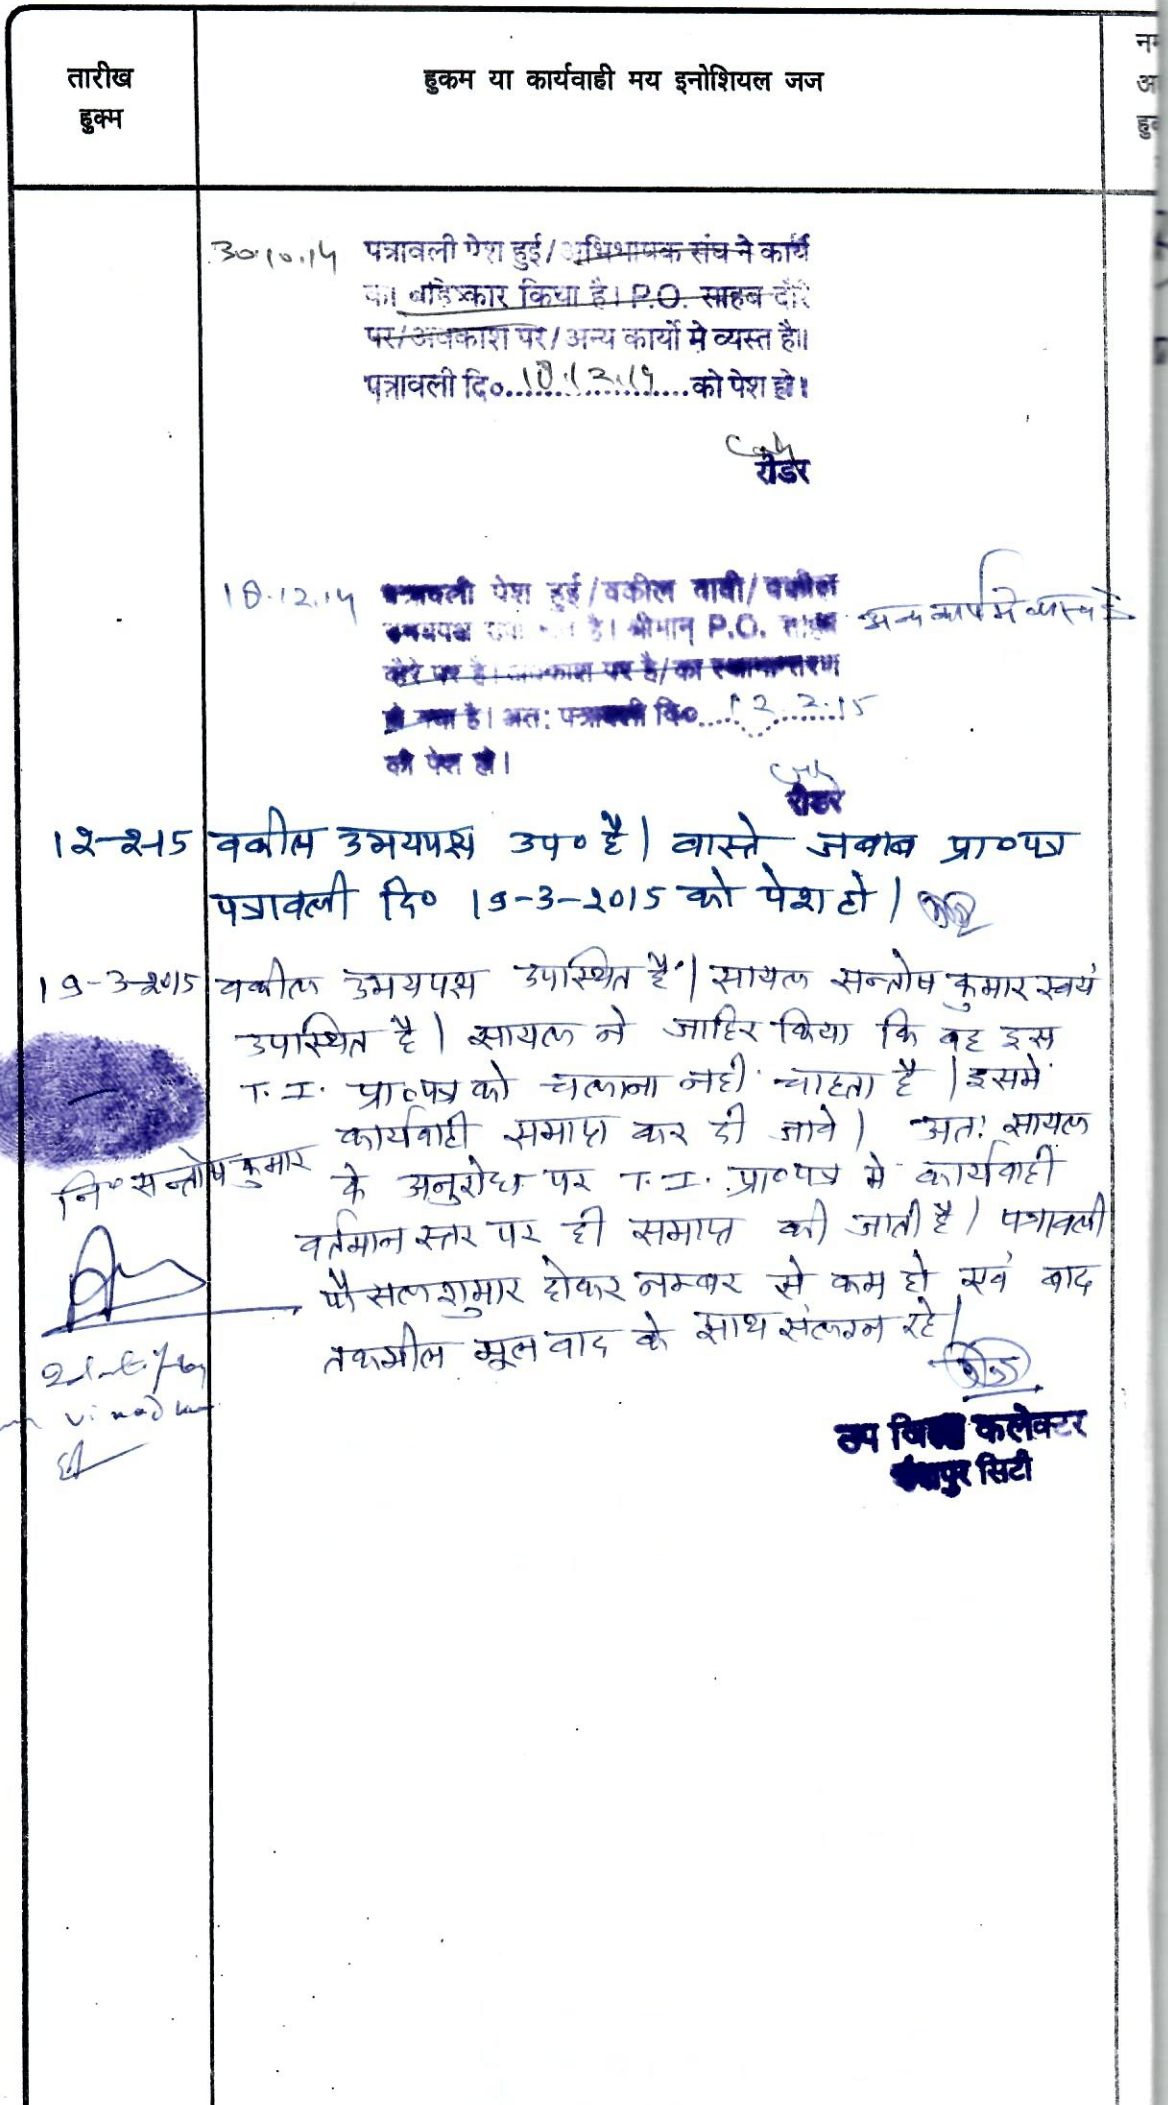 तारीख
हुक्म
हुकम या कार्यवाही मय इनोशियल जज
30.10.14 पत्रावली पेश हुई/अभिभाषक संघ ने कार्य
का बहिष्कार किया है। P.O. साहब दौरे
पर/अवकाश पर/अन्य कार्यो मे व्यस्त है।
पत्रावली दि०....18.12.14....को पेश हो।
रीडर
18.12.14 पत्रावली पेश हुई/वकील वादी/वकील
उभयपक्ष है। श्रीमान् P.O. साहब अन्य कार्य में व्यस्त है
दौरे पर है। अवकाश पर है/का स्थानान्तरण
हो गया है। अत: पत्रावली दि०....12.2.15
को पेश हो।
रीडर
12-2-15 वकील उभयपक्ष उप० है। वास्ते जवाब प्रा०पत्र
पत्रावली दि० 19-3-2015 को पेश हो।
19-3-2015 वकील उभयपक्ष उपस्थित है। सायल सन्तोष कुमार स्वयं
उपस्थित है। सायल ने जाहिर किया कि वह इस
T.I. प्रा०पत्र को चलाना नहीं चाहता है। इसमें
कार्यवाही समाप्त कर दी जावे। अत: सायल
नि० सन्तोष कुमार
के अनुरोध पर T.I. प्रा०पत्र मे कार्यवाही
वर्तमान स्तर पर ही समाप्त की जाती है। पत्रावली
फैसलशुमार होकर नम्बर से कम हो एवं बाद
तकमील मूल वाद के साथ संलग्न रहे।
उप जिला कलेक्टर
सिटी